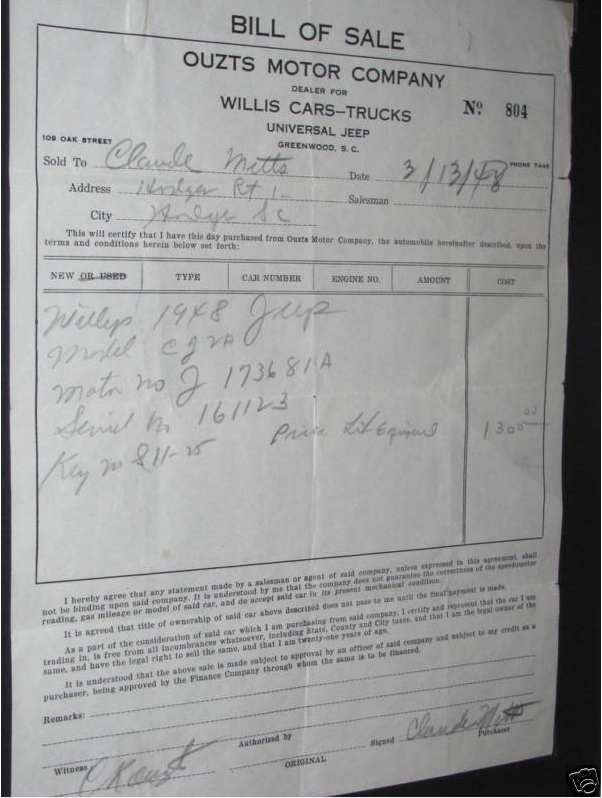 BILL OF SALE
OUZTS MOTOR COMPANY
DEALER FOR
WILLIS CARS—TRUCKS
Nº 804
UNIVERSAL JEEP
109 OAK STREET
GREENWOOD, S. C.
PHONE
Sold To Claude Metts Date 3/13/48
Address Hodges Rt 1 Salesman
City Hodges SC
This will certify that I have this day purchased from Ouzts Motor Company, the automobile hereinafter described, upon the
terms and conditions herein below set forth:
NEW OR USED TYPE CAR NUMBER ENGINE NO. AMOUNT COST
Willys 1948 Jeep
Model CJ2A
Motor no J 173681A
Serial No 161123
Price 1300 00
Key no 811-25
I hereby agree that any statement made by a salesman or agent of said company, unless expressed in this agreement, shall
not be binding upon said company. It is understood by me that the company does not guarantee the correctness of the speedometer
reading, gas mileage or model of said car, and do accept said car in its present mechanical condition.
It is agreed that title of ownership of said car above described does not pass to me until the final payment is made.
As a part of the consideration of said car which I am purchasing from said company, I certify and represent that the car I am
trading in, is free from all incumbrances whatsoever, including State, County and City taxes, and that I am the legal owner of the
same, and have the legal right to sell the same, and that I am twenty-one years of age.
It is understood that the above sale is made subject to approval by an officer of said company and subject to my credit as a
purchaser, being approved by the Finance Company through whom the same is to be financed.
Remarks:
Authorized by
Signed Claude Metts
Purchaser
Witness
ORIGINAL